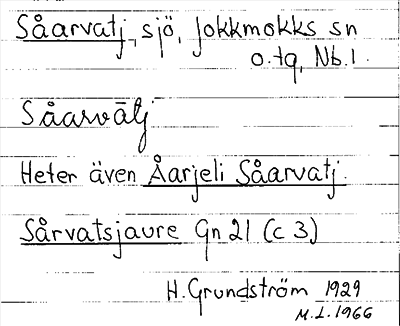 Såarvatj, sjö, Jokkmokks sn
o. tg, Nb. l.
Såarvātj
Heter även Åarjeli Såarvatj.
Sårvatsjaure Gn 21 (c 3)
H. Grundström 1929
M.L. 1966